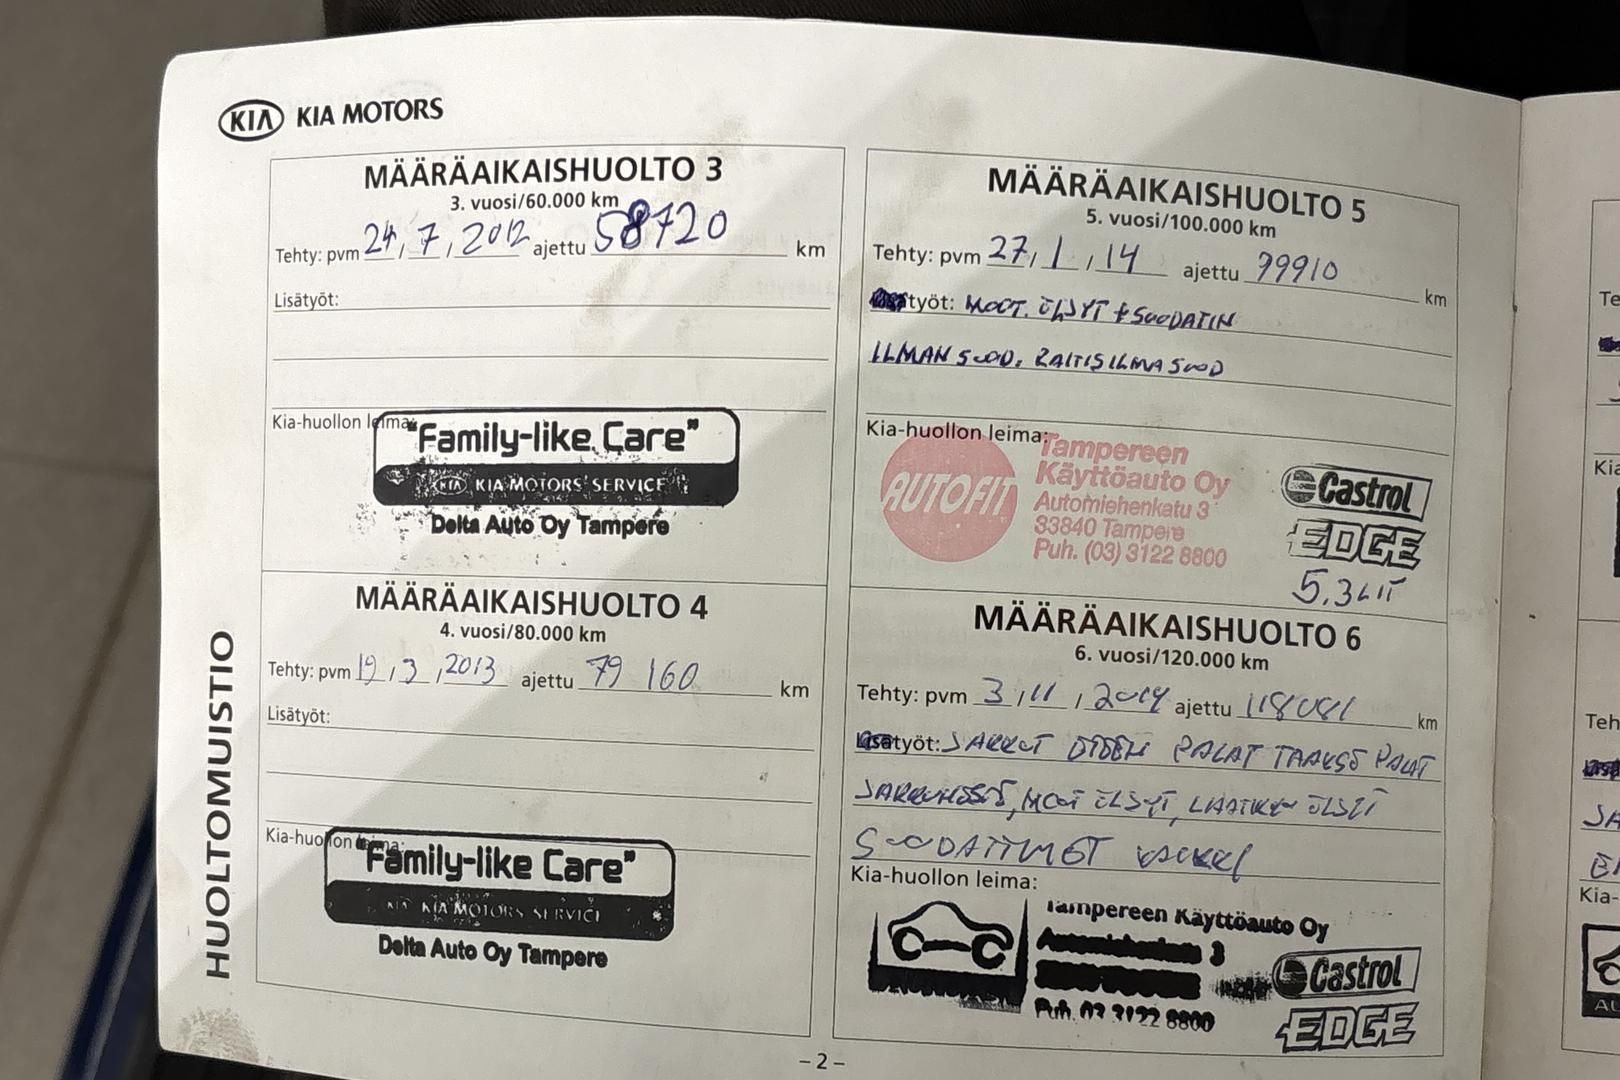 KIA KIA MOTORS
HUOLTOMUISTIO
MÄÄRÄAIKAISHUOLTO 3
3. vuosi/60.000 km
Tehty: pvm 24, 7, 2012 ajettu 58720 km
Lisätyöt:
Kia-huollon leima:
"Family-like Care"
KIA KIA MOTORS SERVICE
Delta Auto Oy Tampere
MÄÄRÄAIKAISHUOLTO 4
4. vuosi/80.000 km
Tehty: pvm 19, 3, 2013 ajettu 79 160 km
Lisätyöt:
Kia-huollon leima:
"Family-like Care"
KIA KIA MOTORS SERVICE
Delta Auto Oy Tampere
MÄÄRÄAIKAISHUOLTO 5
5. vuosi/100.000 km
Tehty: pvm 27, 1, 14 ajettu 99910 km
työt: MOOT. ÖLJYT + SUODATIN
ILMAN SUOD. RAITISILMA SUOD
Kia-huollon leima:
AUTOFIT
Tampereen
Käyttöauto Oy
Automiehenkatu 3
33840 Tampere
Puh. (03) 3122 8800
Castrol
EDGE
5.3 LIT
MÄÄRÄAIKAISHUOLTO 6
6. vuosi/120.000 km
Tehty: pvm 3, 11, 2014 ajettu 118081 km
Lisätyöt: JARRUT PALAT TAAKSE PALAT
MOOT ÖLJYT, LAATIKON ÖLJYT
SUODATTIMET KAIKKI
Kia-huollon leima:
Tampereen Käyttöauto Oy
Automiehenkatu 3
Puh. 03 3122 8800
Castrol
EDGE
– 2 –